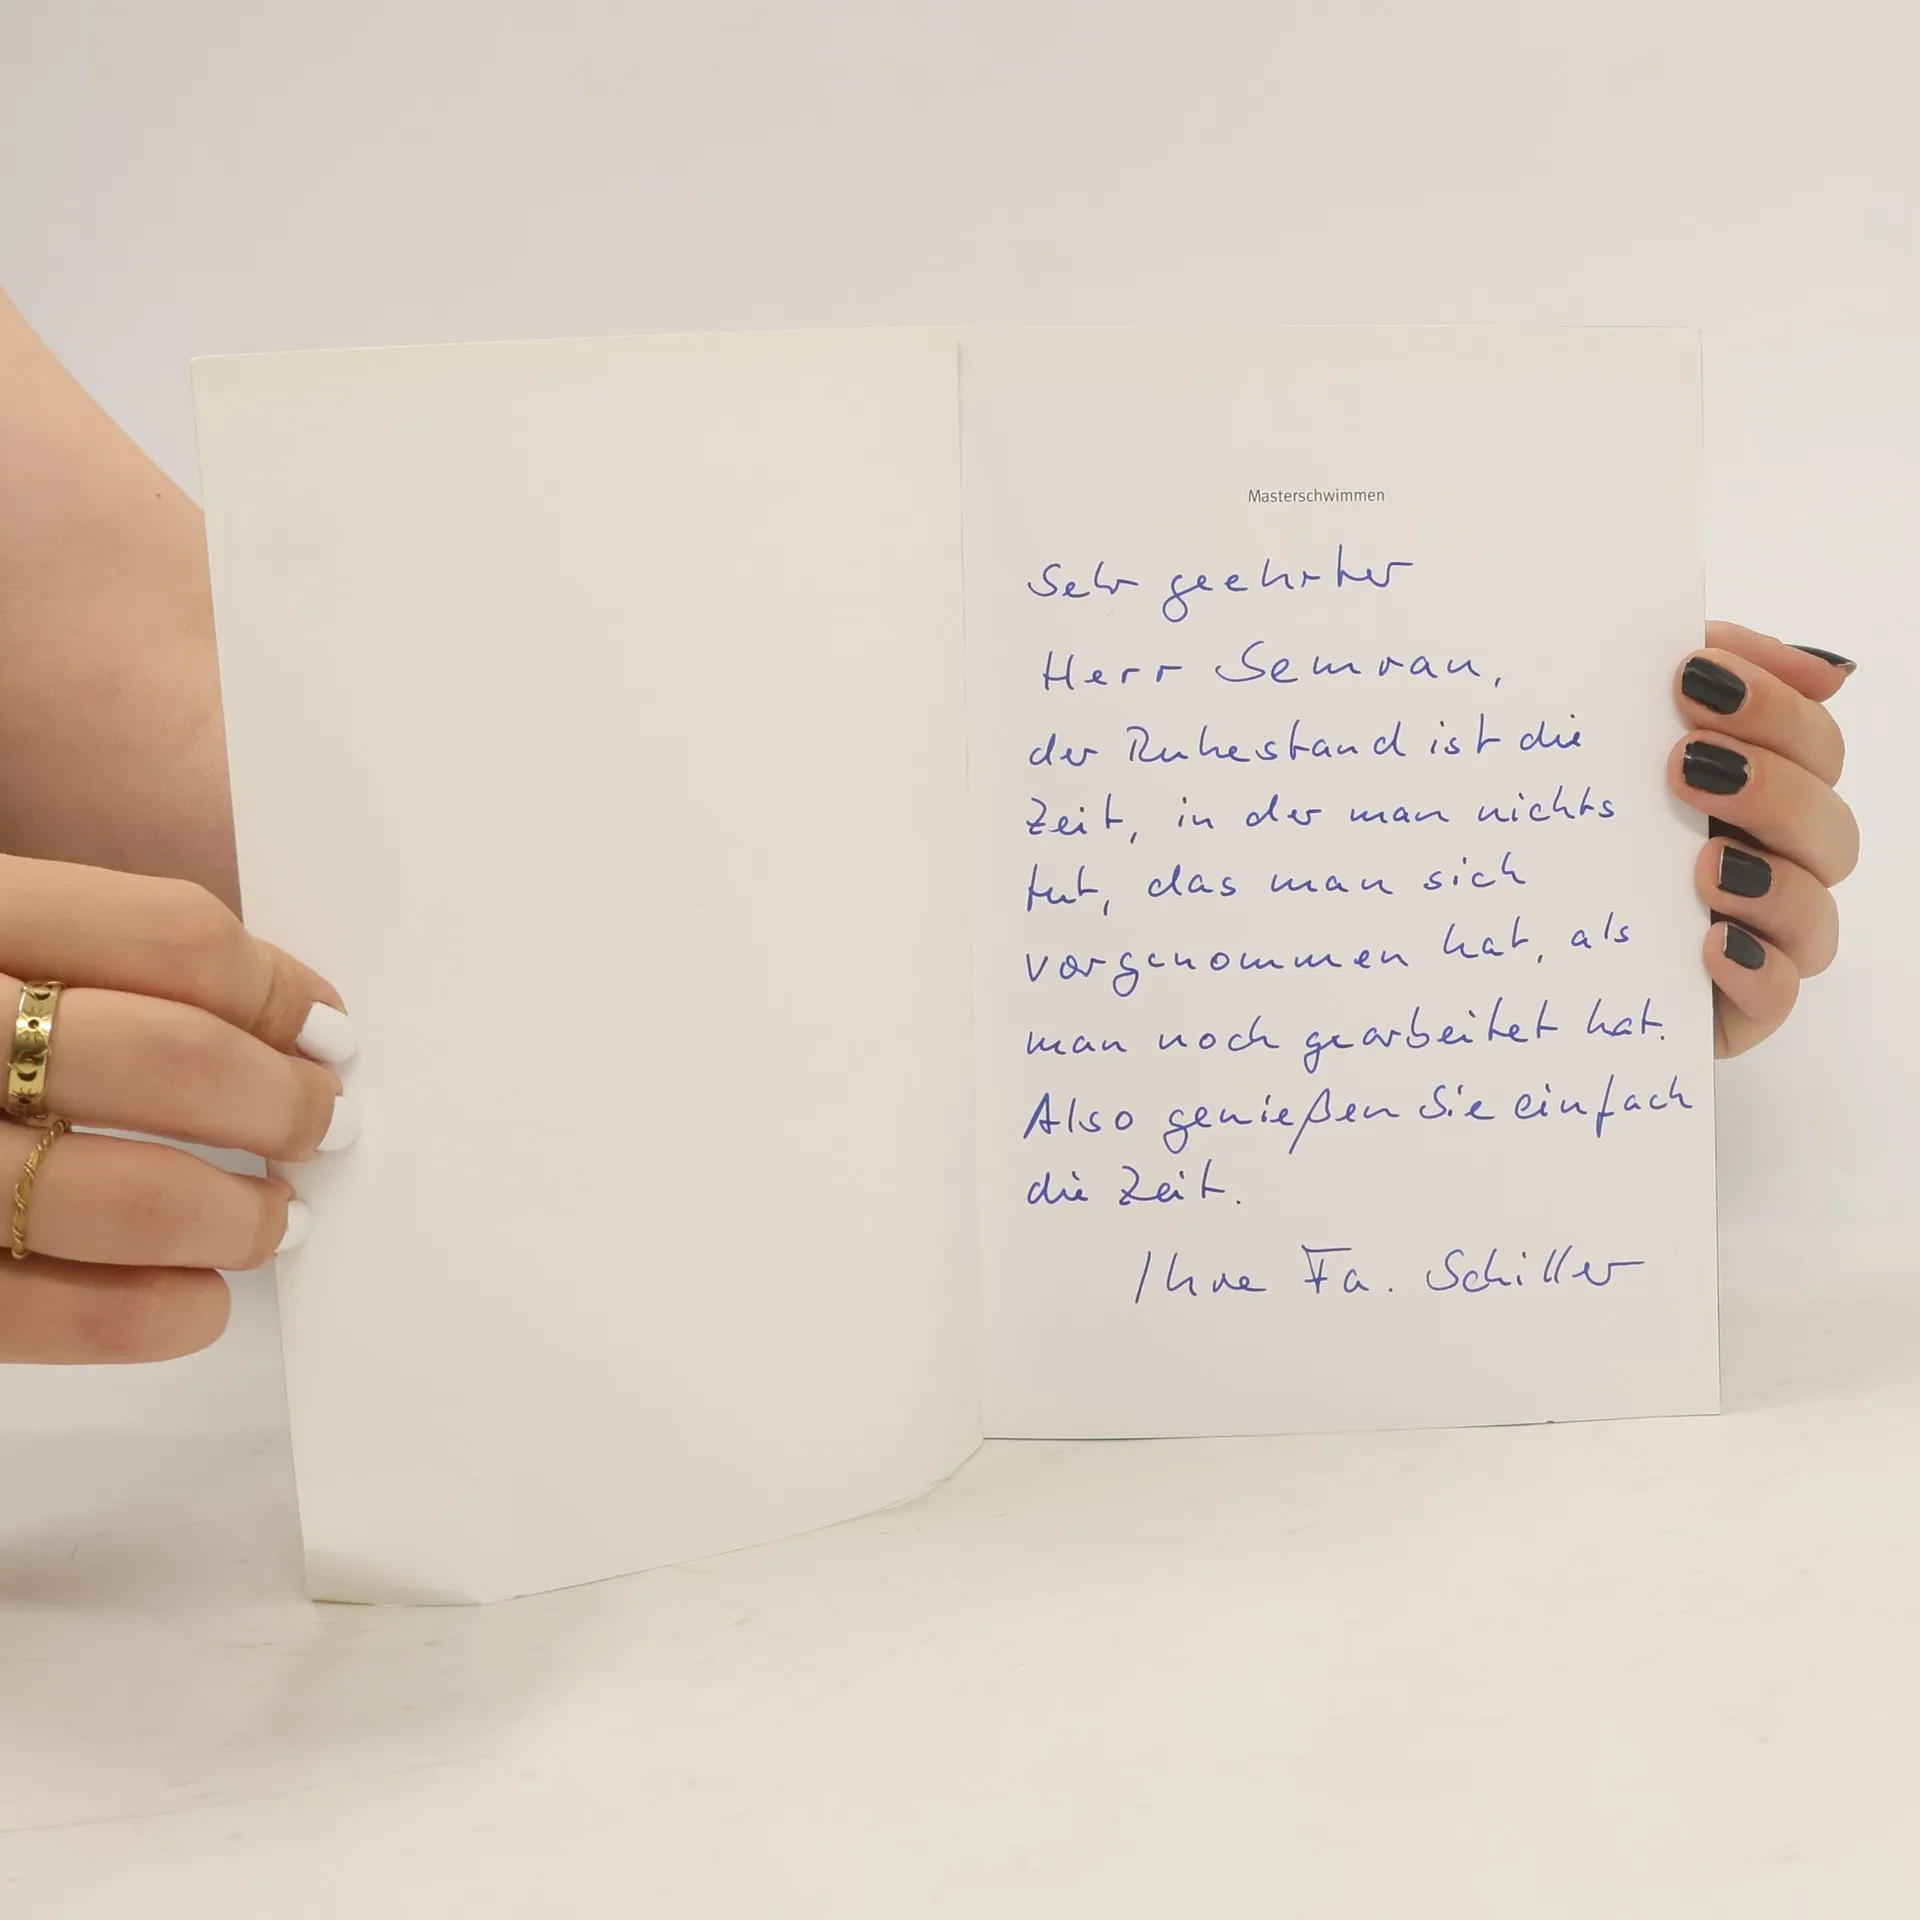 Masterschwimmen
Sehr geehrter
Herr Semrau,
der Ruhestand ist die
Zeit, in der man nichts
tut, das man sich
vorgenommen hat, als
man noch gearbeitet hat.
Also genießen Sie einfach
die Zeit.
Ihre Fa. Schiller